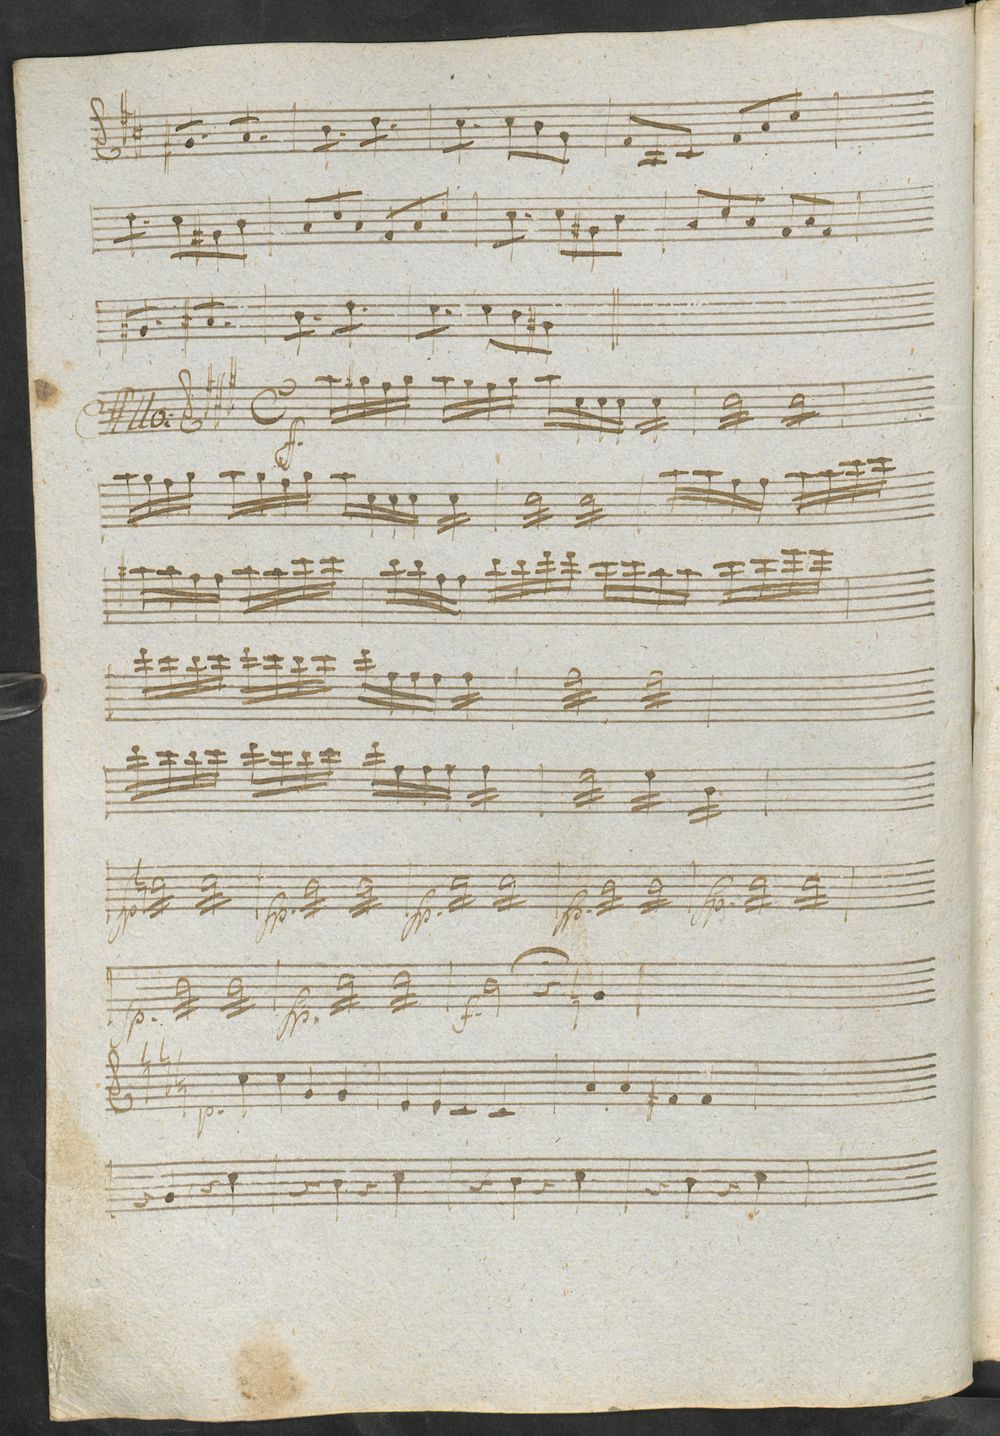 Allo: f.
fp. fp. fp. fp. fp.
fp. fp. f.
p.